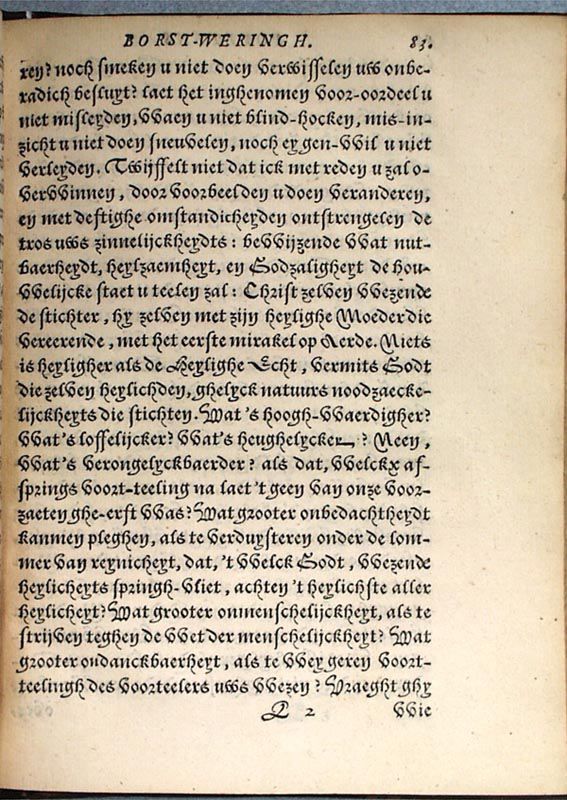 BORST-WERINGH. 83.
ren? noch smeken u niet doen verwisselen uw onbe-
radich besluyt? laet het inghenomen voor-oordeel u
niet misleyden, vvaen u niet blind-hocken, mis-in-
zicht u niet doen sneuvelen, noch eygen-vvil u niet
verleyden. Twijffelt niet dat ick met reden u zal o-
vervvinnen, door voorbeelden u doen veranderen,
en met deftighe omstandicheyden ontstrengelen de
tros uws zinnelijckheydts: bevvijzende vvat nut-
baerheydt, heylzaemheyt, en Godzaligheyt de hou-
vvelijcke staet u teelen zal: Christ zelven vvezende
de stichter, hy zelven met zijn heylighe Moeder die
vereerende, met het eerste mirakel op Aerde. Niets
is heyligher als de Heylighe Echt, vermits Godt
die zelven heylichden, ghelyck natuurs noodzaecke-
lijckheyts die stichten. Wat's hoogh-vvaerdigher?
vvat's loffelijcker? vvat's heughelycker? Neen,
vvat's verongelyckbaerder? als dat, vvelckx af-
springs voort-teeling na laet 't geen van onze voor-
zaeten ghe-erft vvas? Wat grooter onbedachtheydt
kanmen pleghen, als te verduysteren onder de lom-
mer van reynicheyt, dat, 't vvelck Godt, vvezende
heylicheyts springh-vliet, achten 't heylichste aller
heylicheyt? Wat grooter onmenschelijckheyt, als te
strijven teghen de vvet der menschelijckheyt? Wat
grooter ondanckbaerheyt, als te vveygeren voort-
teelingh des voorteelers uws vvezen? Vraeght ghy
Q 2 vvie